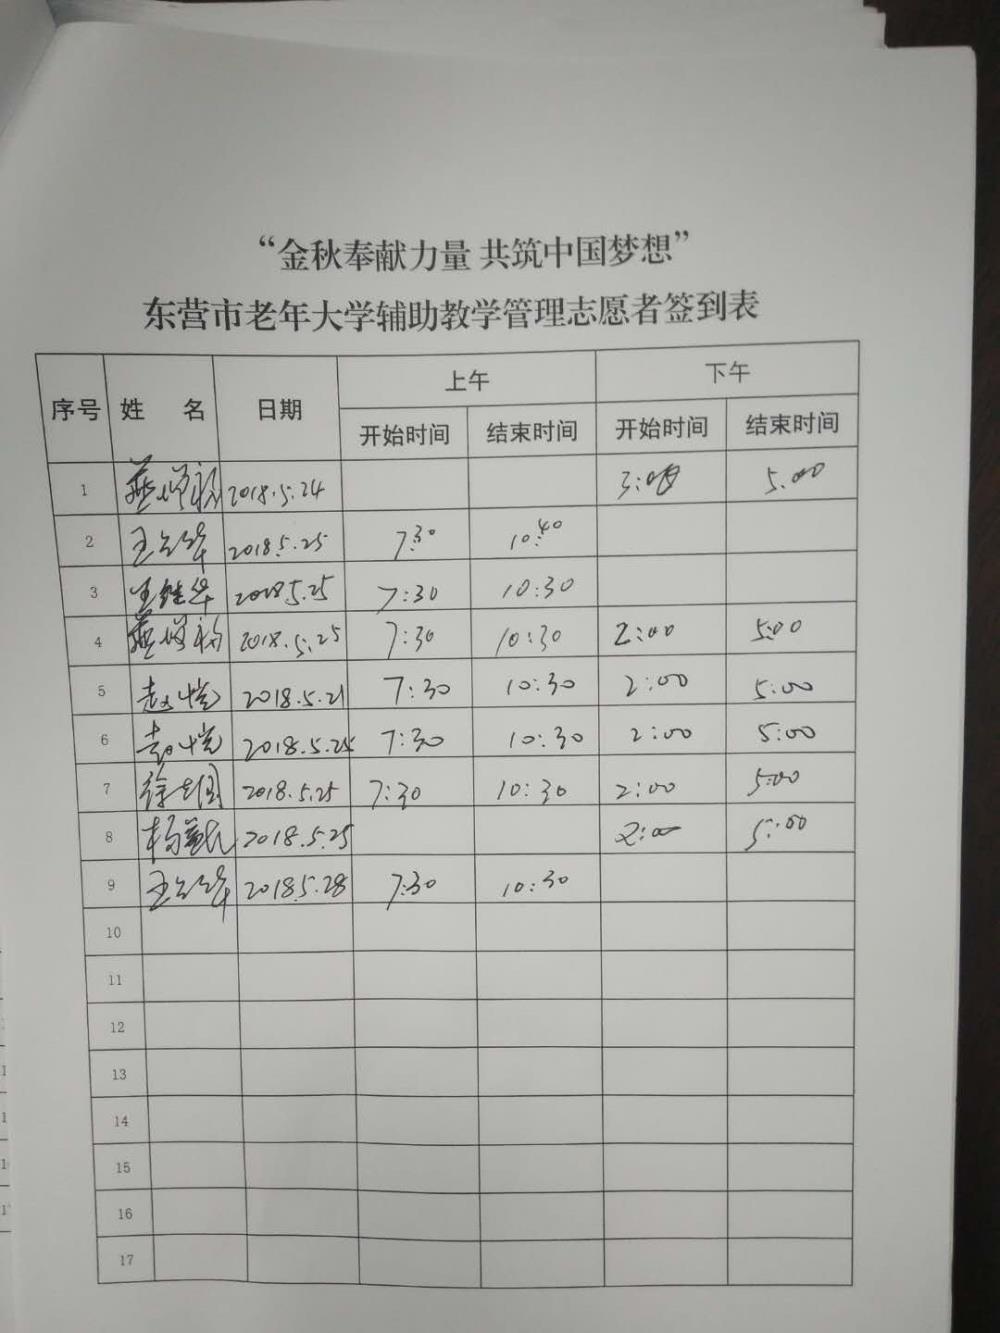 “金秋奉献力量 共筑中国梦想”
东营市老年大学辅助教学管理志愿者签到表
序号 姓 名 日期 上午 下午
开始时间 结束时间 开始时间 结束时间
1 2018.5.24 3:00 5.00
2 2018.5.25 7:30 10:40
3 王继华 2018.5.25 7:30 10:30
4 2018.5.25 7:30 10:30 2:00 5:00
5 赵恺 2018.5.21 7:30 10:30 2:00 5:00
6 赵恺 7:30 10:30 2:00 5:00
7 2018.5.25 7:30 10:30 2:00 5:00
8 2018.5.25 2:00 5:00
9 2018.5.28 7:30 10:30
10
11
12
13
14
15
16
17